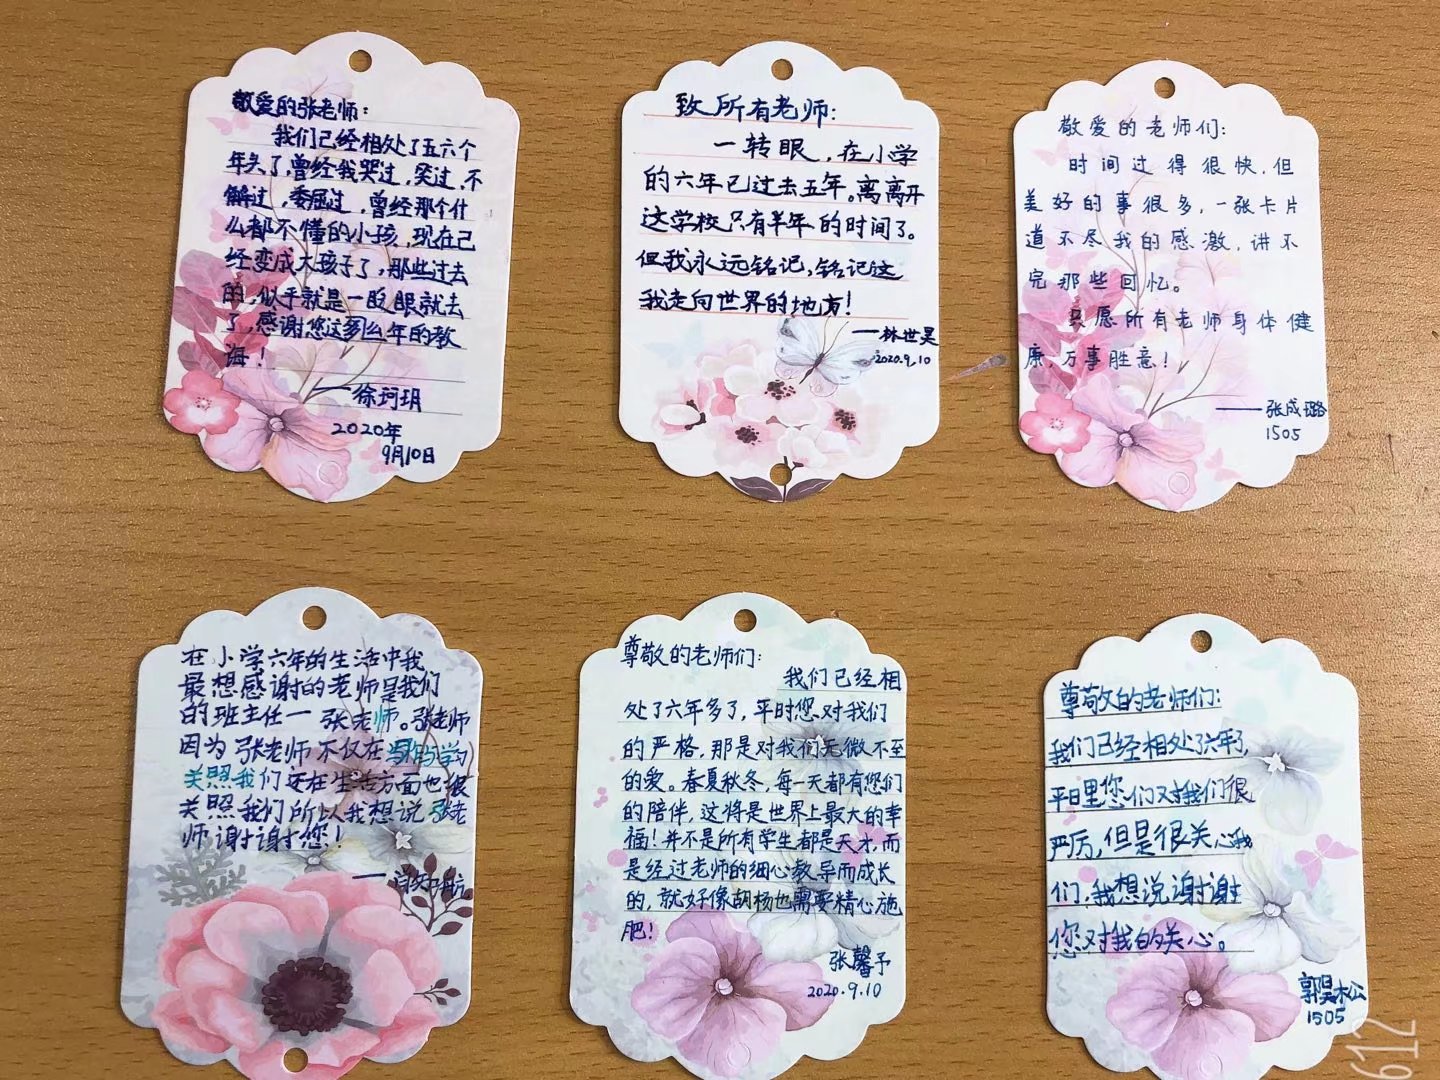 敬爱的张老师：
我们已经相处了五六个
年头了，曾经我哭过，笑过，不
解过，委屈过，曾经那个什
么都不懂的小孩，现在已
经变成大孩子了，那些过去
的，似乎就是一眨眼就去
了，感谢您这多么年的教
海！
——徐珂玥
2020年
9月10日
致所有老师：
一转眼，在小学
的六年已过去五年。离离开
这学校只有半年的时间了。
但我永远铭记，铭记这
我走向世界的地方！
——林世昊
2020.9.10
敬爱的老师们：
时间过得很快，但
美好的事很多，一张卡片
道不尽我的感激，讲不
完那些回忆。
只愿所有老师身体健
康，万事胜意！
——张成璐
1505
在小学六年的生活中我
最想感谢的老师是我们
的班主任一张老师。张老师
因为张老师不仅在学
关照我们还在生活方面也很
关照我们所以我想说张老
师谢谢您！
尊敬的老师们：
我们已经相
处了六年多了，平时您对我们
的严格，那是对我们无微不至
的爱。春夏秋冬，每一天都有您们
的陪伴，这将是世界上最大的幸
福！并不是所有学生都是天才，而
是经过老师的细心教导而成长
的，就好像胡杨也需要精心施
肥！
张馨予
2020.9.10
尊敬的老师们：
我们已经相处了六年了，
平日里您们对我们很
严厉，但是很关心我
们，我想说谢谢
您对我的关心。
郭昊松
1505
612